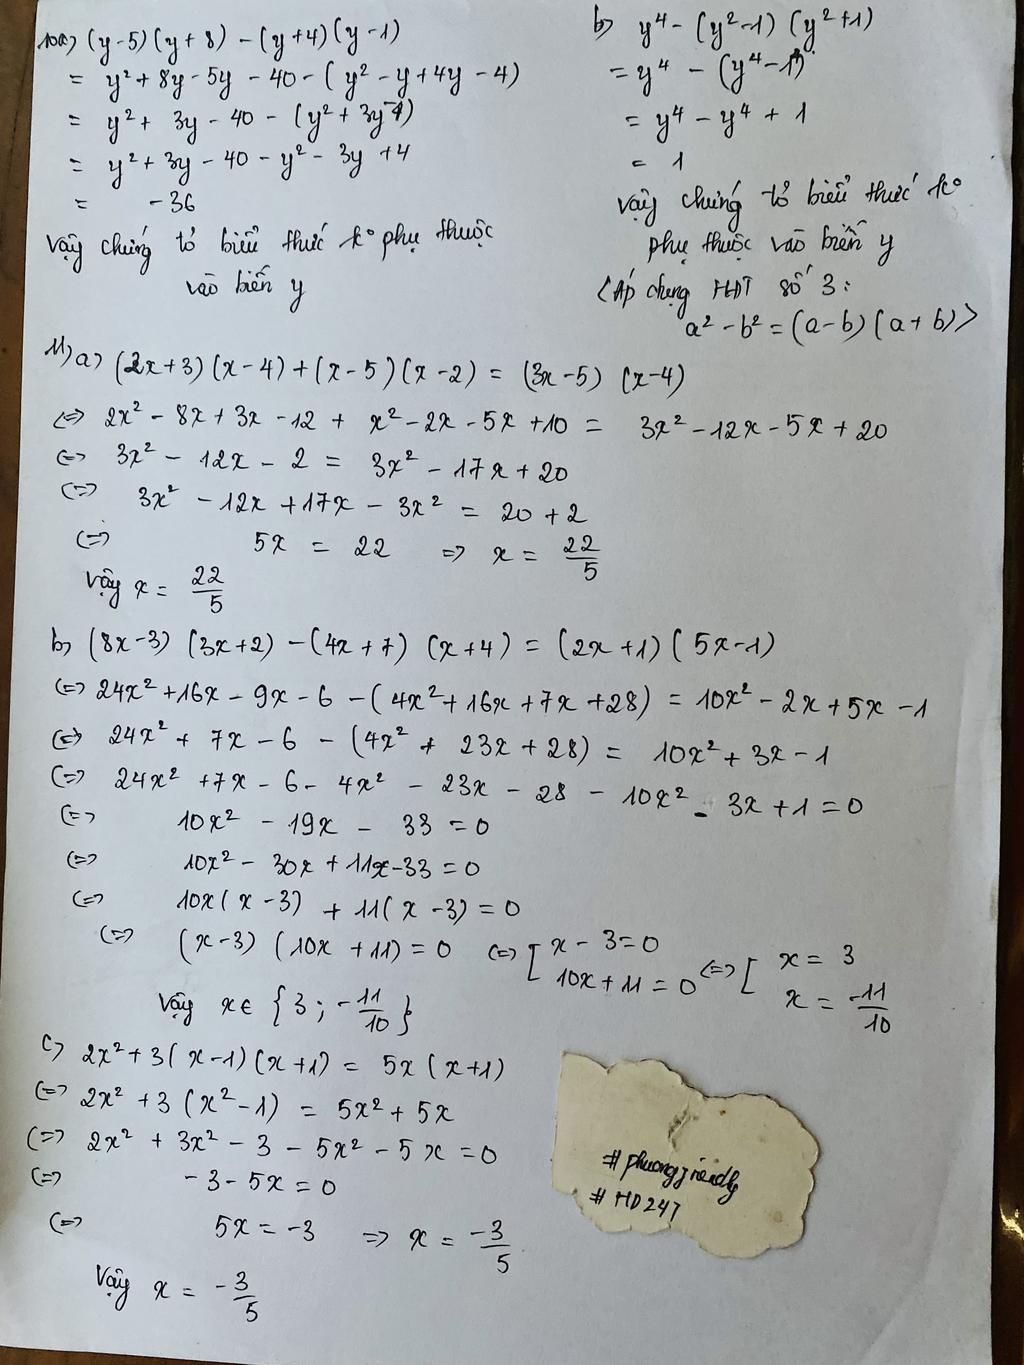 10a) (y-5)(y+8) - (y+4)(y-1)
= y² + 8y - 5y - 40 - (y² - y + 4y - 4)
= y² + 3y - 40 - (y² + 3y - 4)
= y² + 3y - 40 - y² - 3y + 4
= -36
Vậy chứng tỏ biểu thức k° phụ thuộc
vào biến y
b) y⁴ - (y²-1)(y²+1)
= y⁴ - (y⁴-1)
= y⁴ - y⁴ + 1
= 1
Vậy chứng tỏ biểu thức k°
phụ thuộc vào biến y
<Áp dụng HĐT số 3:
a² - b² = (a-b)(a+b)>
11) a) (2x+3)(x-4) + (x-5)(x-2) = (3x-5)(x-4)
<=> 2x² - 8x + 3x - 12 + x² - 2x - 5x + 10 = 3x² - 12x - 5x + 20
<=> 3x² - 12x - 2 = 3x² - 17x + 20
<=> 3x² - 12x + 17x - 3x² = 20 + 2
<=> 5x = 22 => x = 22/5
Vậy x = 22/5
b) (8x-3)(3x+2) - (4x+7)(x+4) = (2x+1)(5x-1)
<=> 24x² + 16x - 9x - 6 - (4x² + 16x + 7x + 28) = 10x² - 2x + 5x - 1
<=> 24x² + 7x - 6 - (4x² + 23x + 28) = 10x² + 3x - 1
<=> 24x² + 7x - 6 - 4x² - 23x - 28 - 10x² - 3x + 1 = 0
<=> 10x² - 19x - 33 = 0
<=> 10x² - 30x + 11x - 33 = 0
<=> 10x(x-3) + 11(x-3) = 0
<=> (x-3)(10x+11) = 0 <=> [ x - 3 = 0 <=> [ x = 3
10x + 11 = 0 x = -11/10
Vậy x ∈ {3; -11/10}
c) 2x² + 3(x-1)(x+1) = 5x(x+1)
<=> 2x² + 3(x²-1) = 5x² + 5x
<=> 2x² + 3x² - 3 - 5x² - 5x = 0
<=> -3 - 5x = 0
<=> 5x = -3 => x = -3/5
Vậy x = -3/5
# HD247